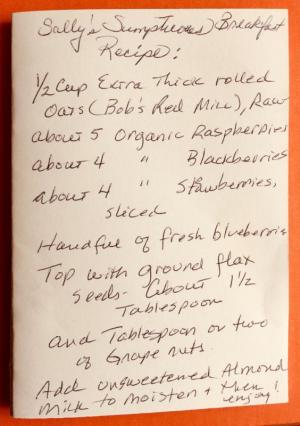 Sally's Sumptuous Breakfast
Recipe:
1/2 Cup Extra Thick rolled
Oats (Bob's Red Mill), Raw
about 5 Organic Raspberries
about 4 " Blackberries
about 4 " Stawberries,
sliced
Handful of fresh blueberries
Top with ground flax
seeds - about 1 1/2
Tablespoon
and Tablespoon or two
of Grape nuts.
Add unsweetened Almond
Milk to moisten + then
enjoy!